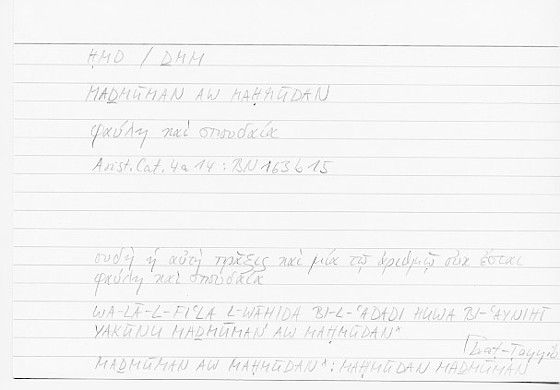 ḤMD / ḎMM
MAḎMŪMAN AW MAḤMŪDAN
φαύλη καὶ σπουδαία
Arist. Cat. 4a14 : BN 163b15
οὐδὲ ἡ αὐτὴ πρᾶξις καὶ μία τῷ ἀριθμῷ οὐκ ἔσται
φαύλη καὶ σπουδαία
WA-LĀ-L-FIʿLA L-WĀḤIDA BI-L-ʿADADI HUWA BI-ʿAYNIHĪ
YAKŪNU MAḎMŪMAN AW MAḤMŪDAN*
[Ibn aṭ-Ṭayyib
MAḎMŪMAN AW MAḤMŪDAN* : MAḤMŪDAN MAḎMŪMAN